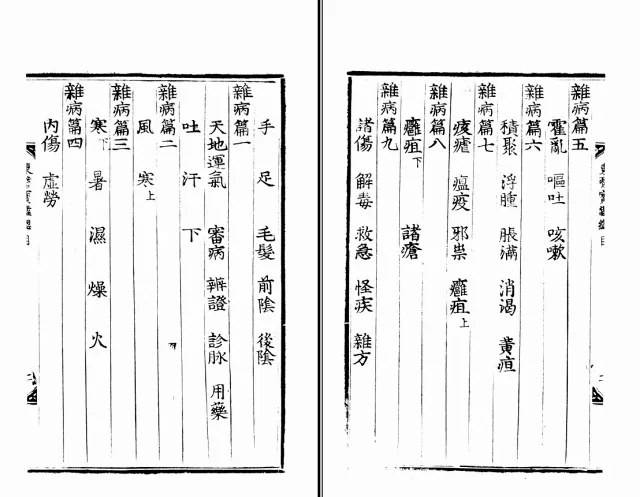 手 足 毛髮 前陰 後陰
雜病篇一
天地運氣 審病 辨證 診脉 用藥
吐 汗 下
雜病篇二
風 寒上
雜病篇三
寒下 暑 濕 燥 火
雜病篇四
內傷 虛勞
東醫寶鑑總目
東醫寶鑑總目
雜病篇五
霍亂 嘔吐 咳嗽
雜病篇六
積聚 浮腫 脹滿 消渴 黃疸
雜病篇七
痎瘧 瘟疫 邪祟 癰疽上
雜病篇八
癰疽下 諸瘡
雜病篇九
諸傷 解毒 救急 怪疾 雜方